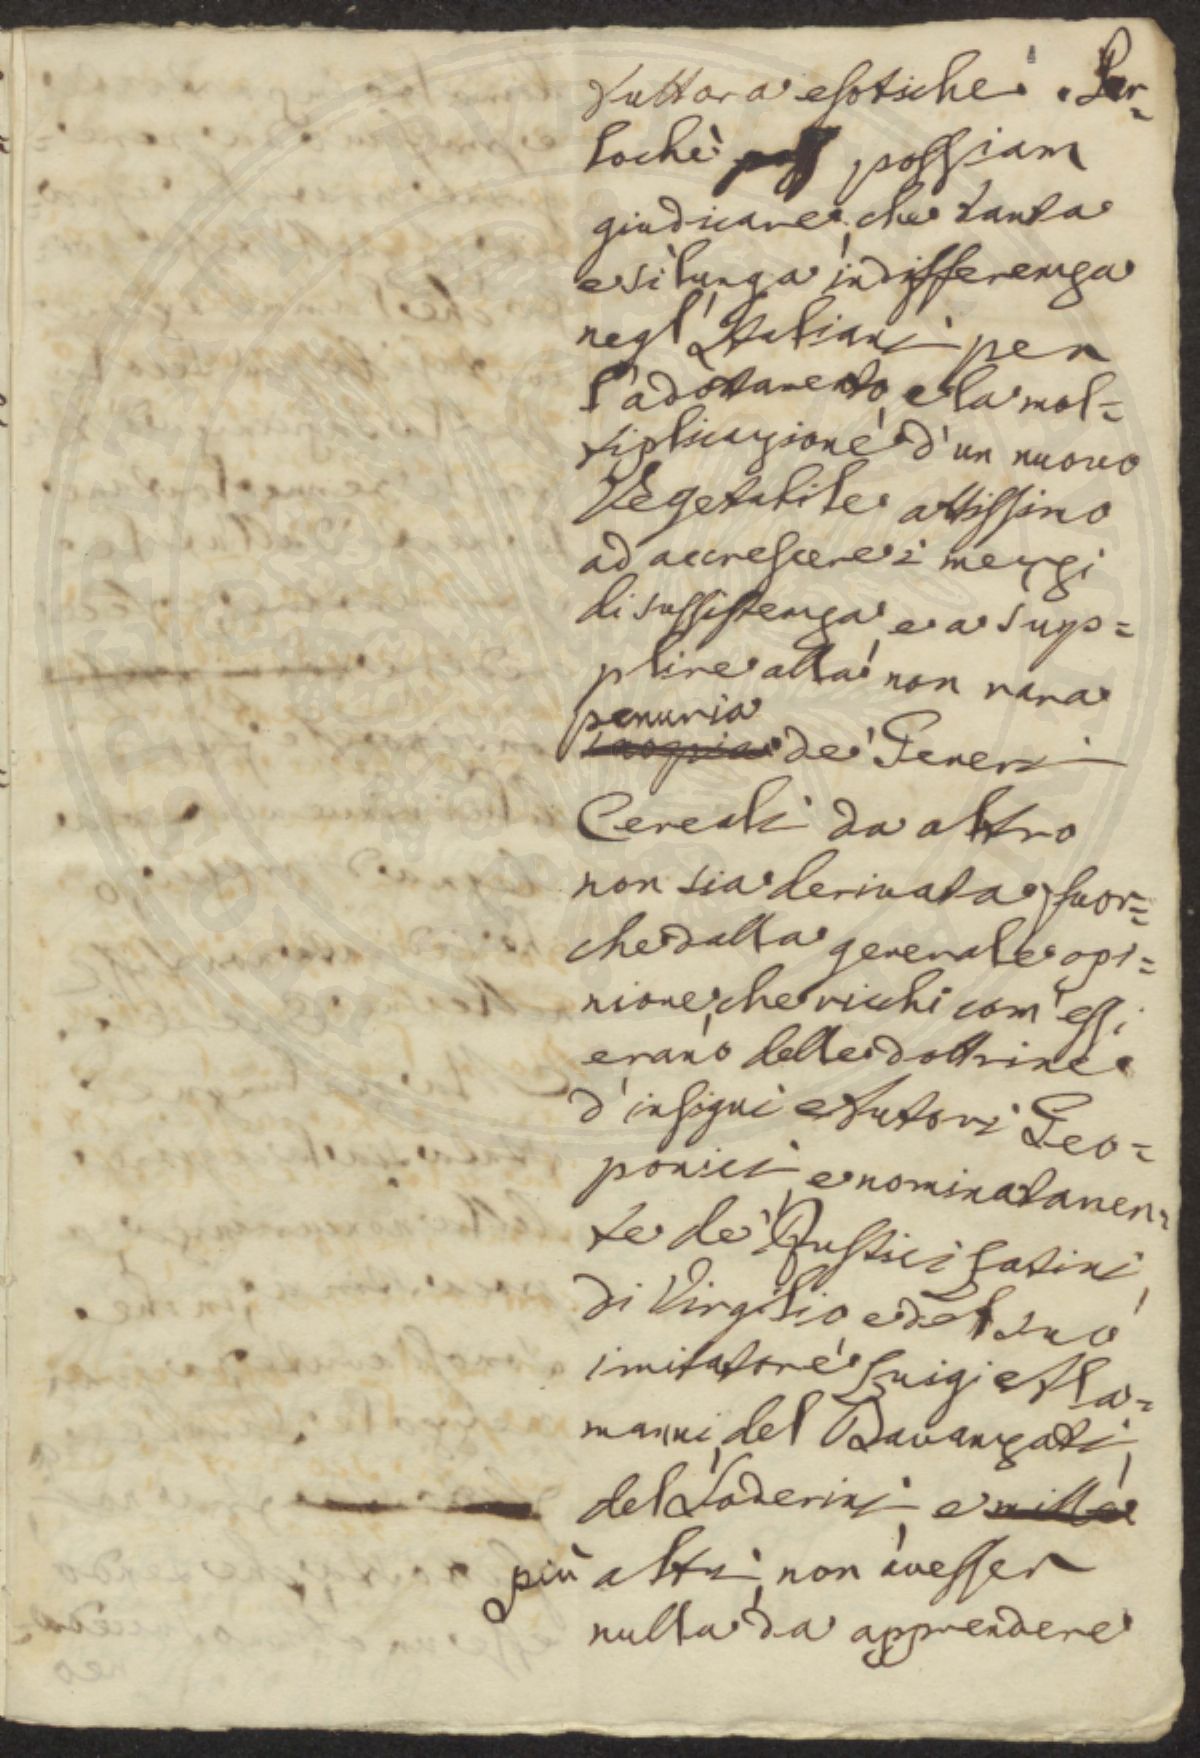 tuttora esotiche. Per=
lochè poss possiam
giudicare, che tanta
e sì lunga indifferenza
negl'Italiani per
l'adottamento, e la mol=
tiplicazione d'un nuovo
Vegetabile attissimo
ad accrescere i mezzi
di sussistenza, e a sup=
plire alla non rara
penuria
inopia de' Generi
Cereali da altro
non sia derivata, fuor=
che dalla generale opi=
nione, che ricchi com'essi
erano delle dottrine
d'insigni Autori Geo=
ponici, e nominatamen=
te de' Rustici Latini,
di Virgilio, e del suo
imitatore Luigi Ala=
manni, del Davanzati,
del Soderini, e mille
più altri, non avesser
nulla da apprendere